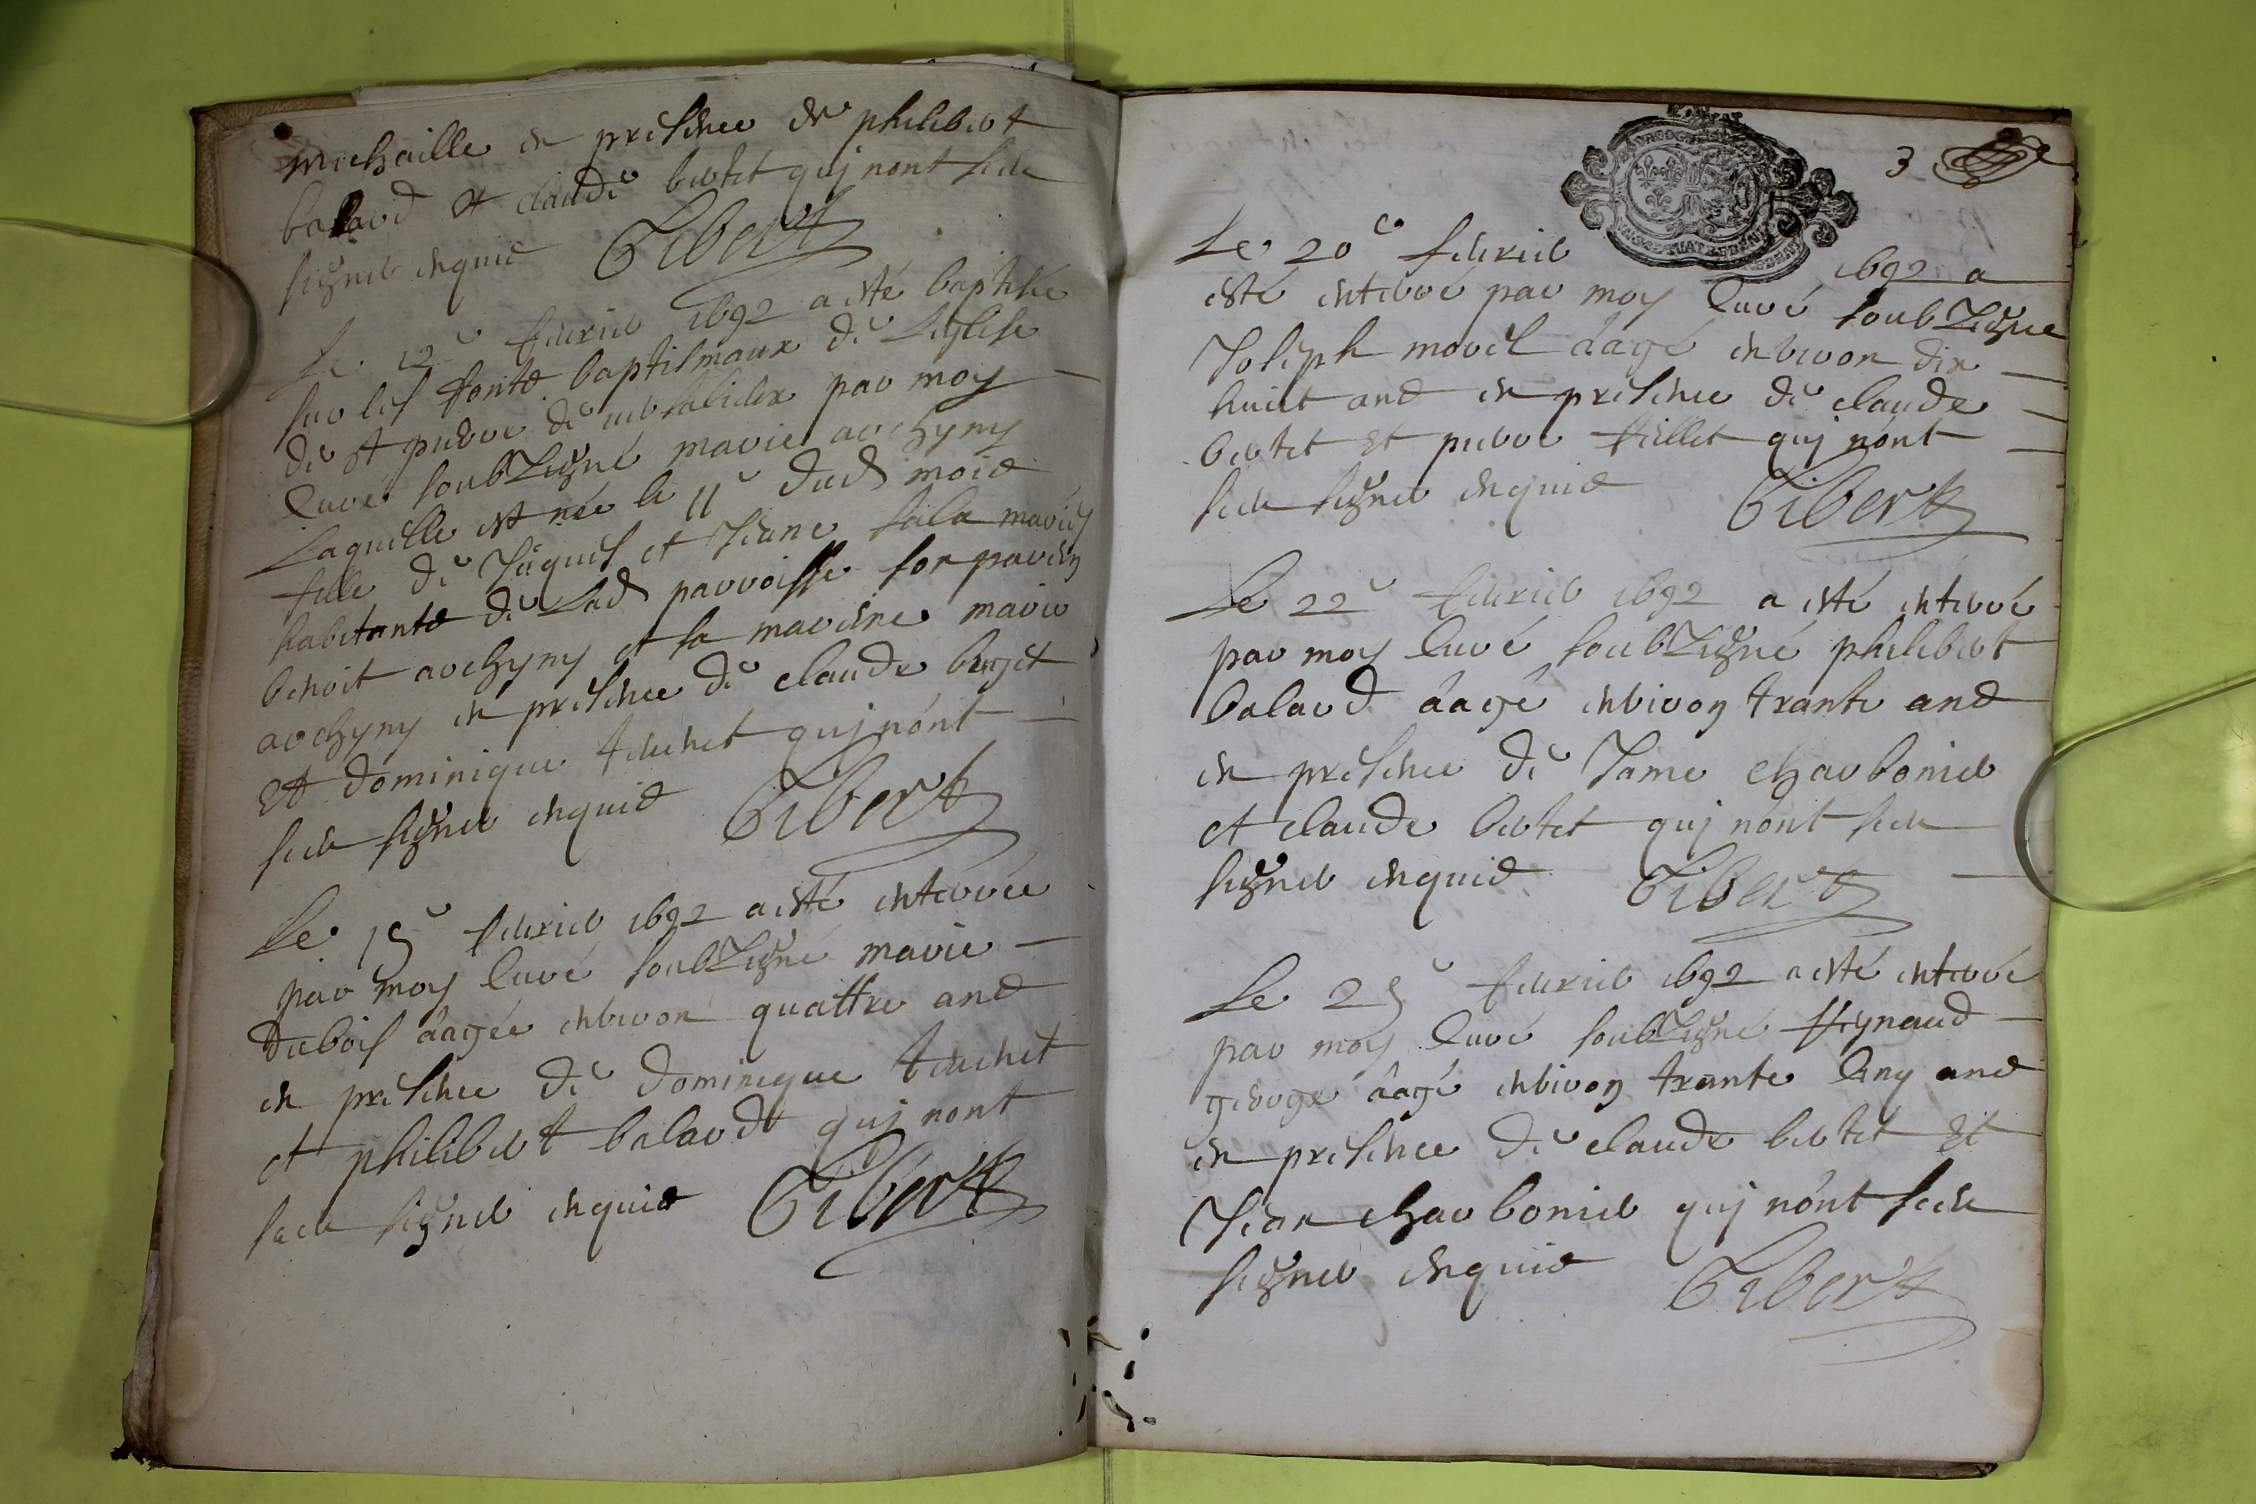 michaille en presence de philibert
balard et claude bertet quj nont sceu
signer enquis Gibert
Le 12e feurier 1692 a esté baptisée
sur les fonts baptismaux de Leglise
de st pierre de par moy
Curé soubsigné marie archyny
Laquelle est née le 11e dud mois
fille de Jaques et Jeane sala mariés
habitants de Lad parroisse son parein
benoit archyny et sa mareine marie
archyny en presence de claude berget
Et dominique teuenet quj nont
sceu signer enquis Gibert
Le 15e feurier 1692 a esté enterrée
par moy Curé soubsigné marie
dubois aagée enuiron quattre ans
en presence de dominique teuenet
et philibert balard quj nont
sceu signer enquis Gibert
3
Le 20e feurier 1692 a
esté enterré par moy Curé soubsigné
Joseph morel aagé enuiron dix
huict ans en presence de claude
bertet et pierre fillet quj nont
sceu signer enquis Gibert
Le 22e feurier 1692 a esté enterré
par moy Curé soubsigné philibert
balard aagé enuiron trante ans
en presence de Jame charbonier
et claude bertet quj nont sceu
signer enquis Gibert
Le 25e feurier 1692 a esté enterré
par moy Curé soubsigné Reynaud
george aagé enuiron trante Cinq ans
en presence de claude bertet Et
Jean charbonier quj nont sceu
signer enquis Gibert